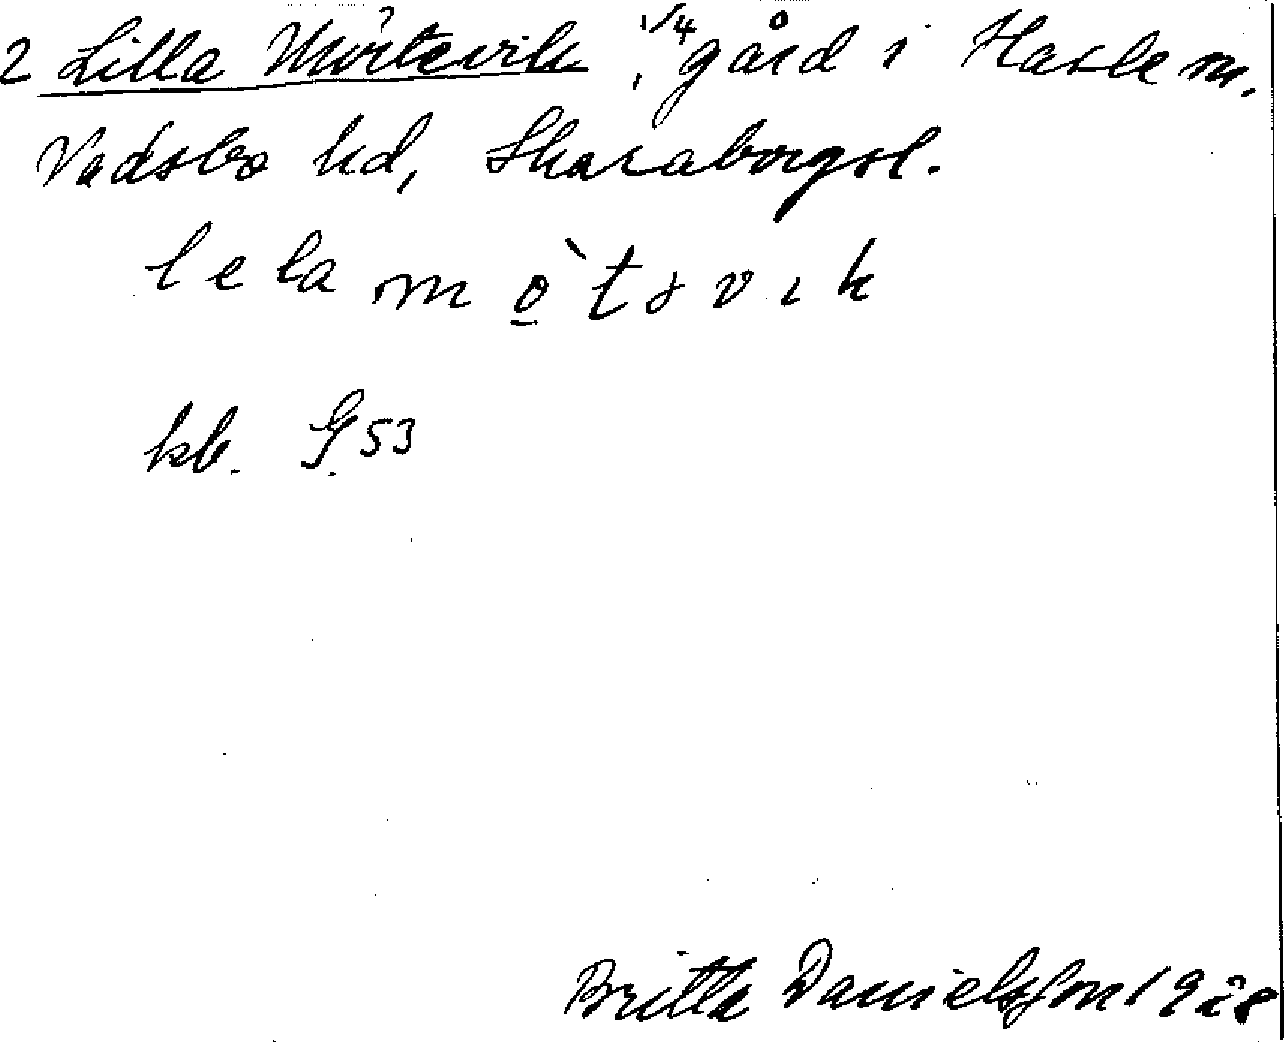 2 Lilla Mörtevik, 1/4 gård i Hassle sn,
Vadsbo hd, Skaraborgsl.
lela mò̲təvik
kb. G 53
Britta Danielsson 1928